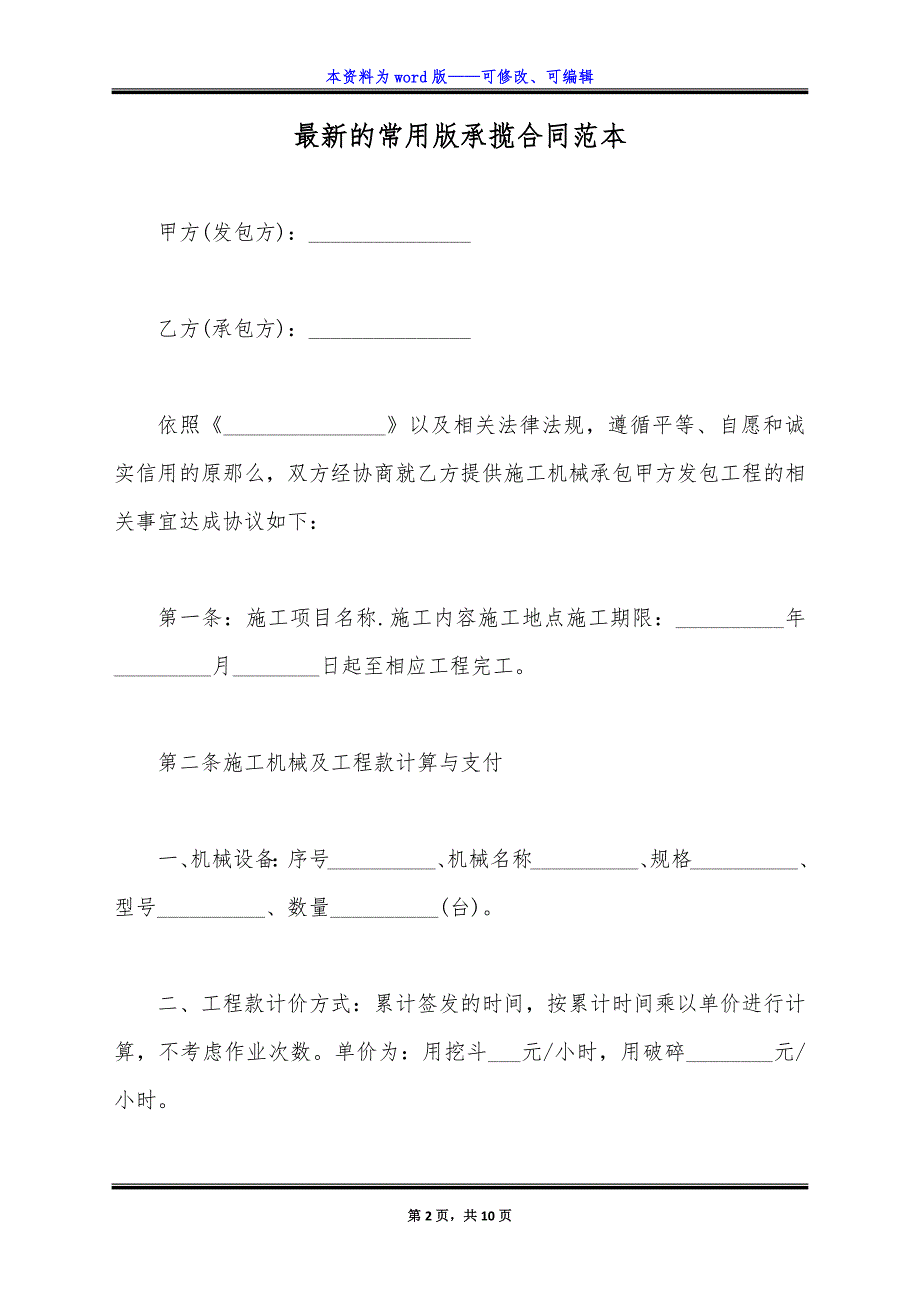 本资料为 word 版——可修改、可编辑
最新的常用版承揽合同范本
甲方(发包方)：_______________
乙方(承包方)：_______________
依照《_______________》以及相关法律法规，遵循平等、自愿和诚
实信用的原那么，双方经协商就乙方提供施工机械承包甲方发包工程的相
关事宜达成协议如下：
第一条：施工项目名称.施工内容施工地点施工期限：__________年
_________月________日起至相应工程完工。
第二条施工机械及工程款计算与支付
一、机械设备：序号__________、机械名称__________、规格__________、
型号__________、数量__________(台)。
二、工程款计价方式：累计签发的时间，按累计时间乘以单价进行计
算，不考虑作业次数。单价为：用挖斗___元/小时，用破碎________元/
小时。
第 2 页，共 10 页